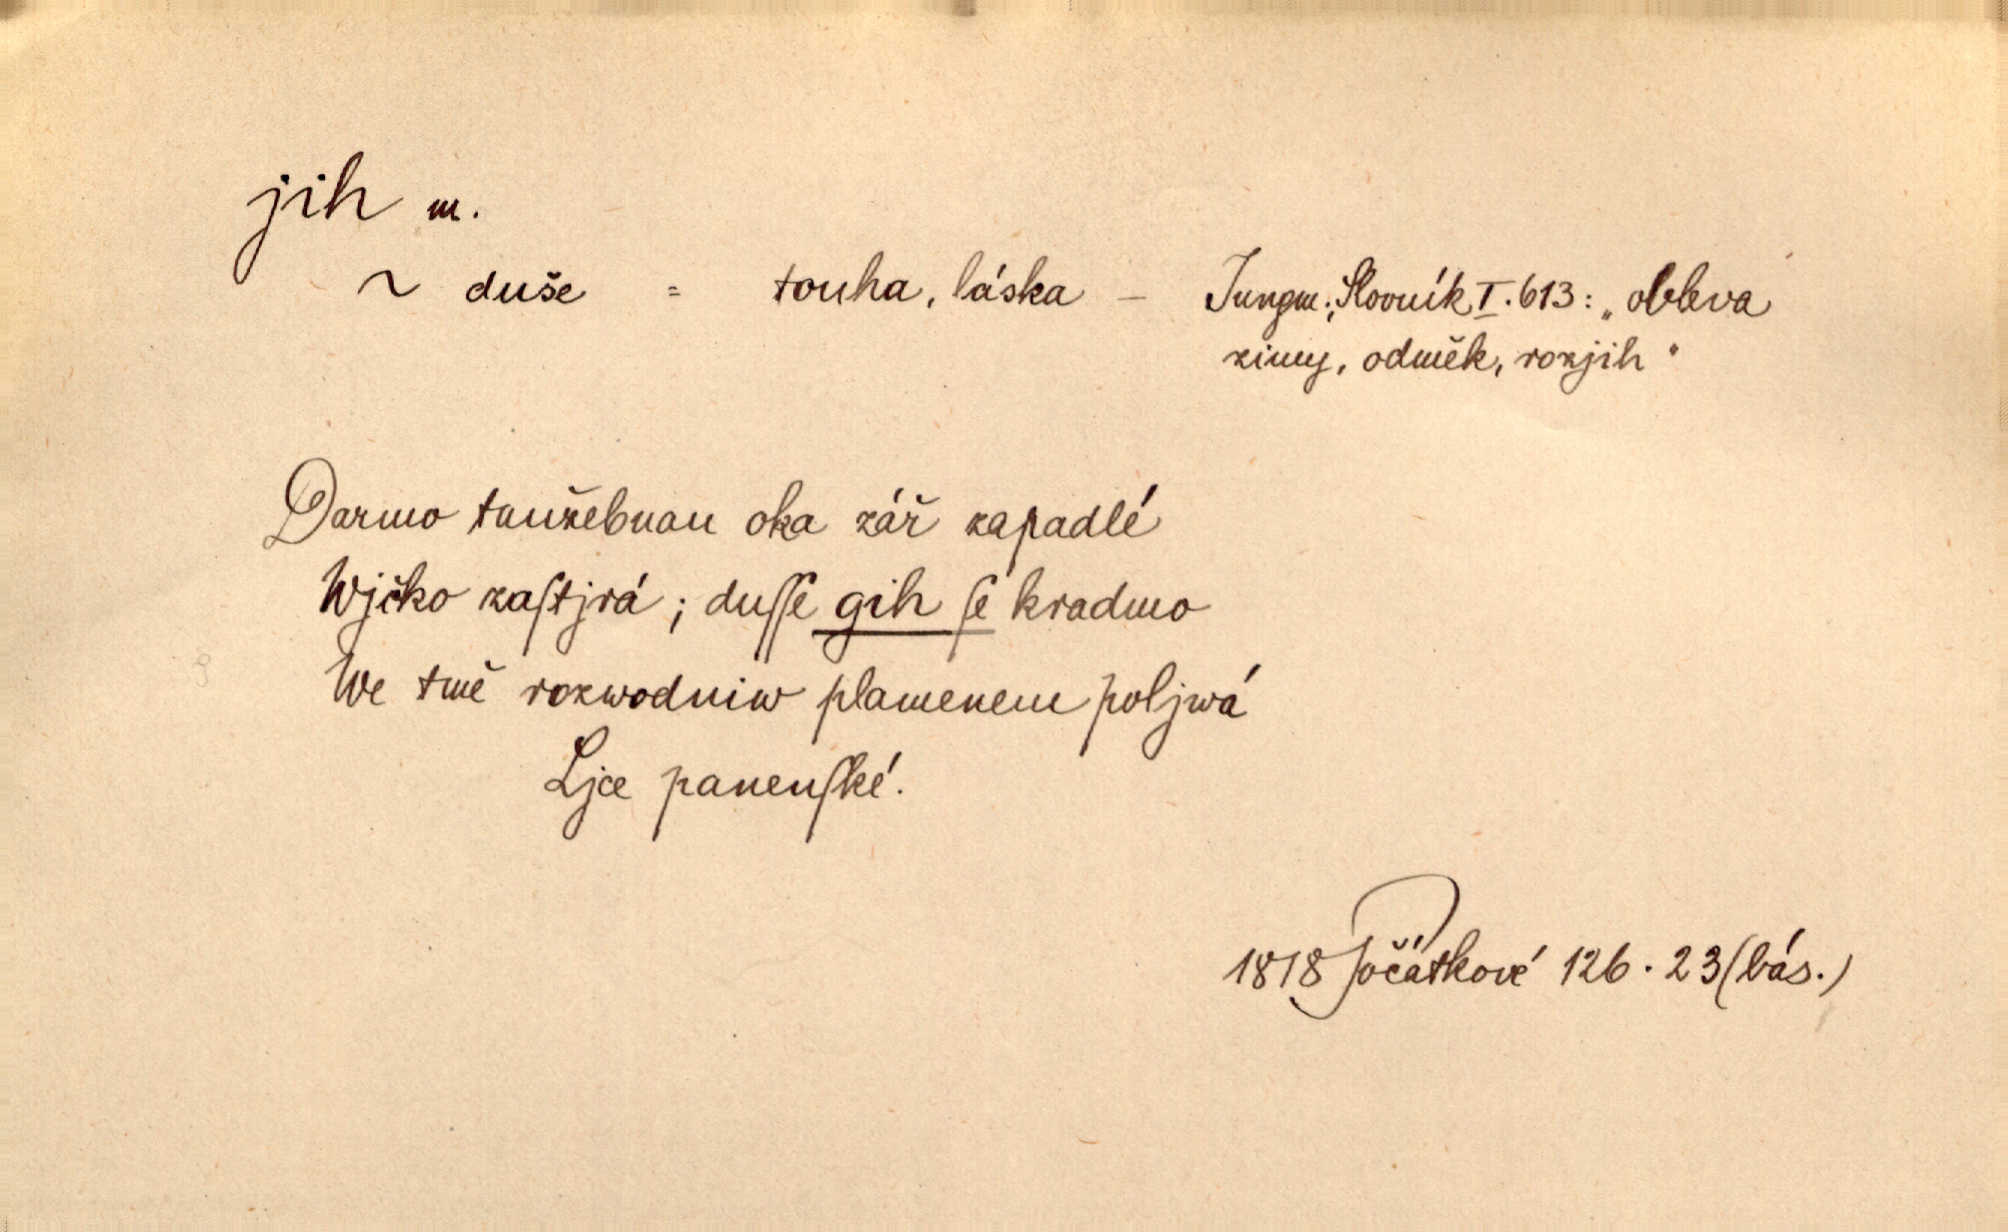 jih m.
~ duše = touha, láska – Jungm., Slovník I. 613: „obleva
zimy, odměk, rozjih“
Darmo taužebnau oka zář zapadlé
Wjčko zaſtjrá; duſſe gih ſe kradmo
We tmě rozwodniw plamenem poljwá
Ljce panenſké.
1818 Počátkové 126. 23 (bás.)